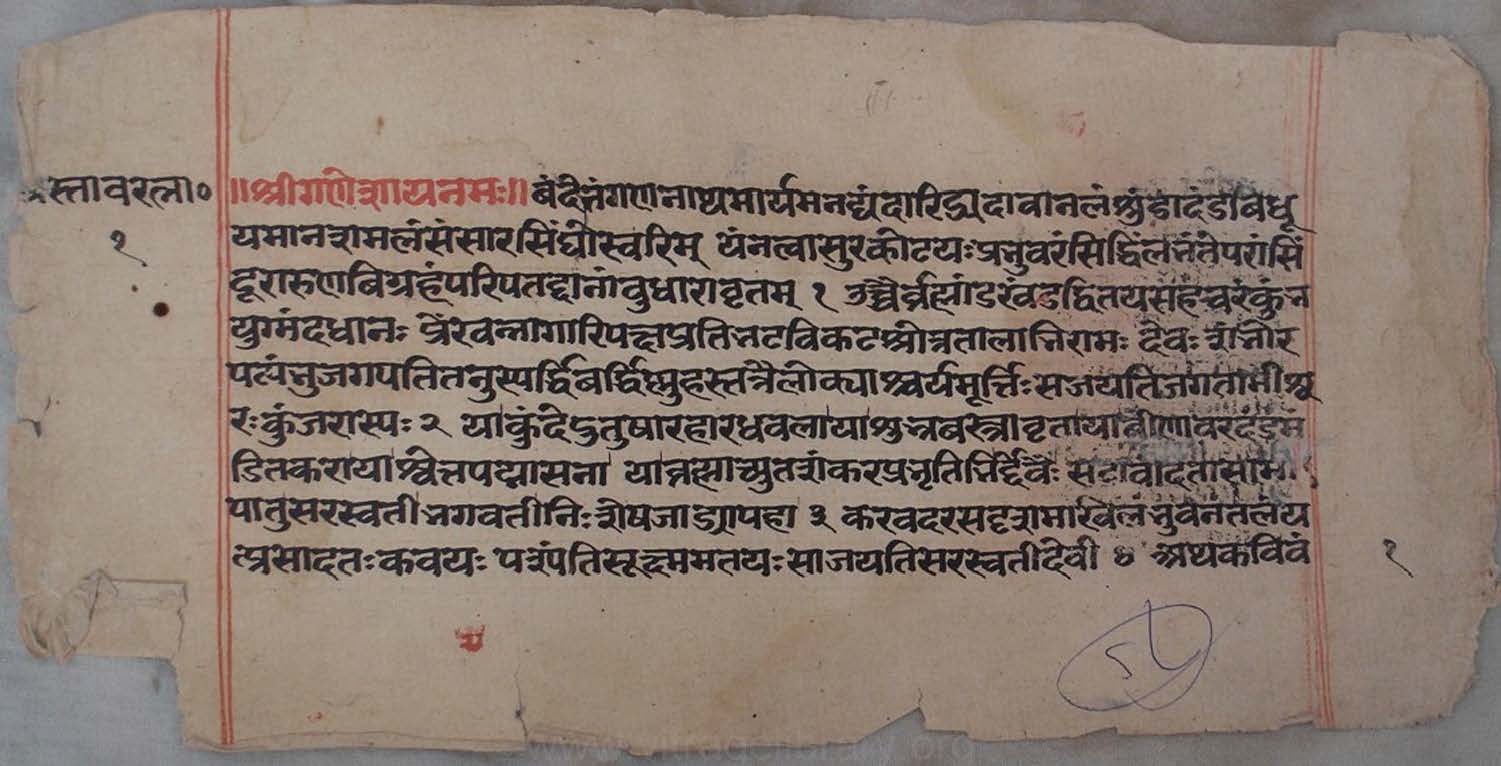 स्तावरत्ना० ॥श्रीगणेशायनमः॥ बंदेतंगणनाथमार्यमनद्यंदारिद्र्यदावानलंश्रुंडादंडबिधू
१ यमानशमलंसंसारसिंघोस्तरिम् यंनत्वासुरकोटयःप्रभुवरंसिद्धिंलभंतेपरांसिं
दूरारुणबिग्रहंपरिपतद्दानांबुधारावृतम् १ उच्चैर्ब्रह्मांडखंडद्वितयसहचरंकुंभ
युग्मंदधानः प्रेंखन्नागारिपक्षप्रतिभटविकटश्रोत्रतालाभिरामः देवः शंभोर
पत्यंभुजगपतितनुस्पर्द्धिबर्द्धिष्णुहस्तस्त्रैलोक्याश्चर्यमूर्त्तिःसजयतिजगतामीश्व
रःकुंजरास्यः २ याकुंदेंदुतुषारहारधवलायाशुभ्रबस्त्रावृतायाबीणावरदंडमं
डितकरायाश्वेतपद्मासना याब्रह्माच्युतशंकरप्रभृतिभिर्द्देवैः सदावंदितासामां
पातुसरस्वतीभगवतीनिःशेषजाड्यापहा ३ करवदरसदृशमखिलंभुवनतलंय
त्प्रसादतःकवयः पश्यंतिसूक्ष्ममतयःसाजयतिसरस्वतीदेवी ४ अथकविवं
१